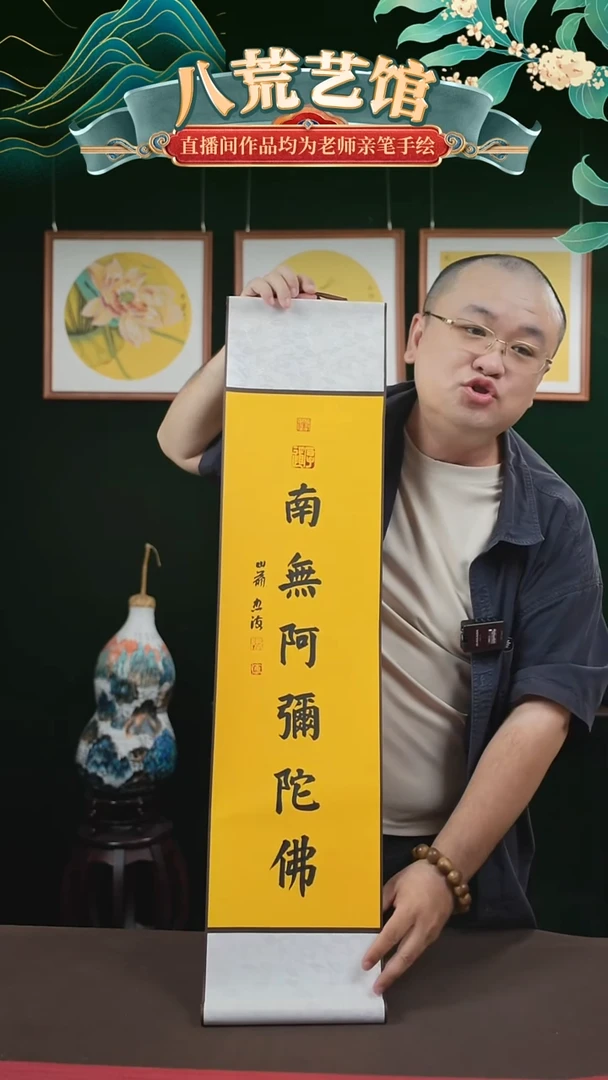 八荒艺馆
直播间作品均为老师亲笔手绘
南無阿彌陀佛